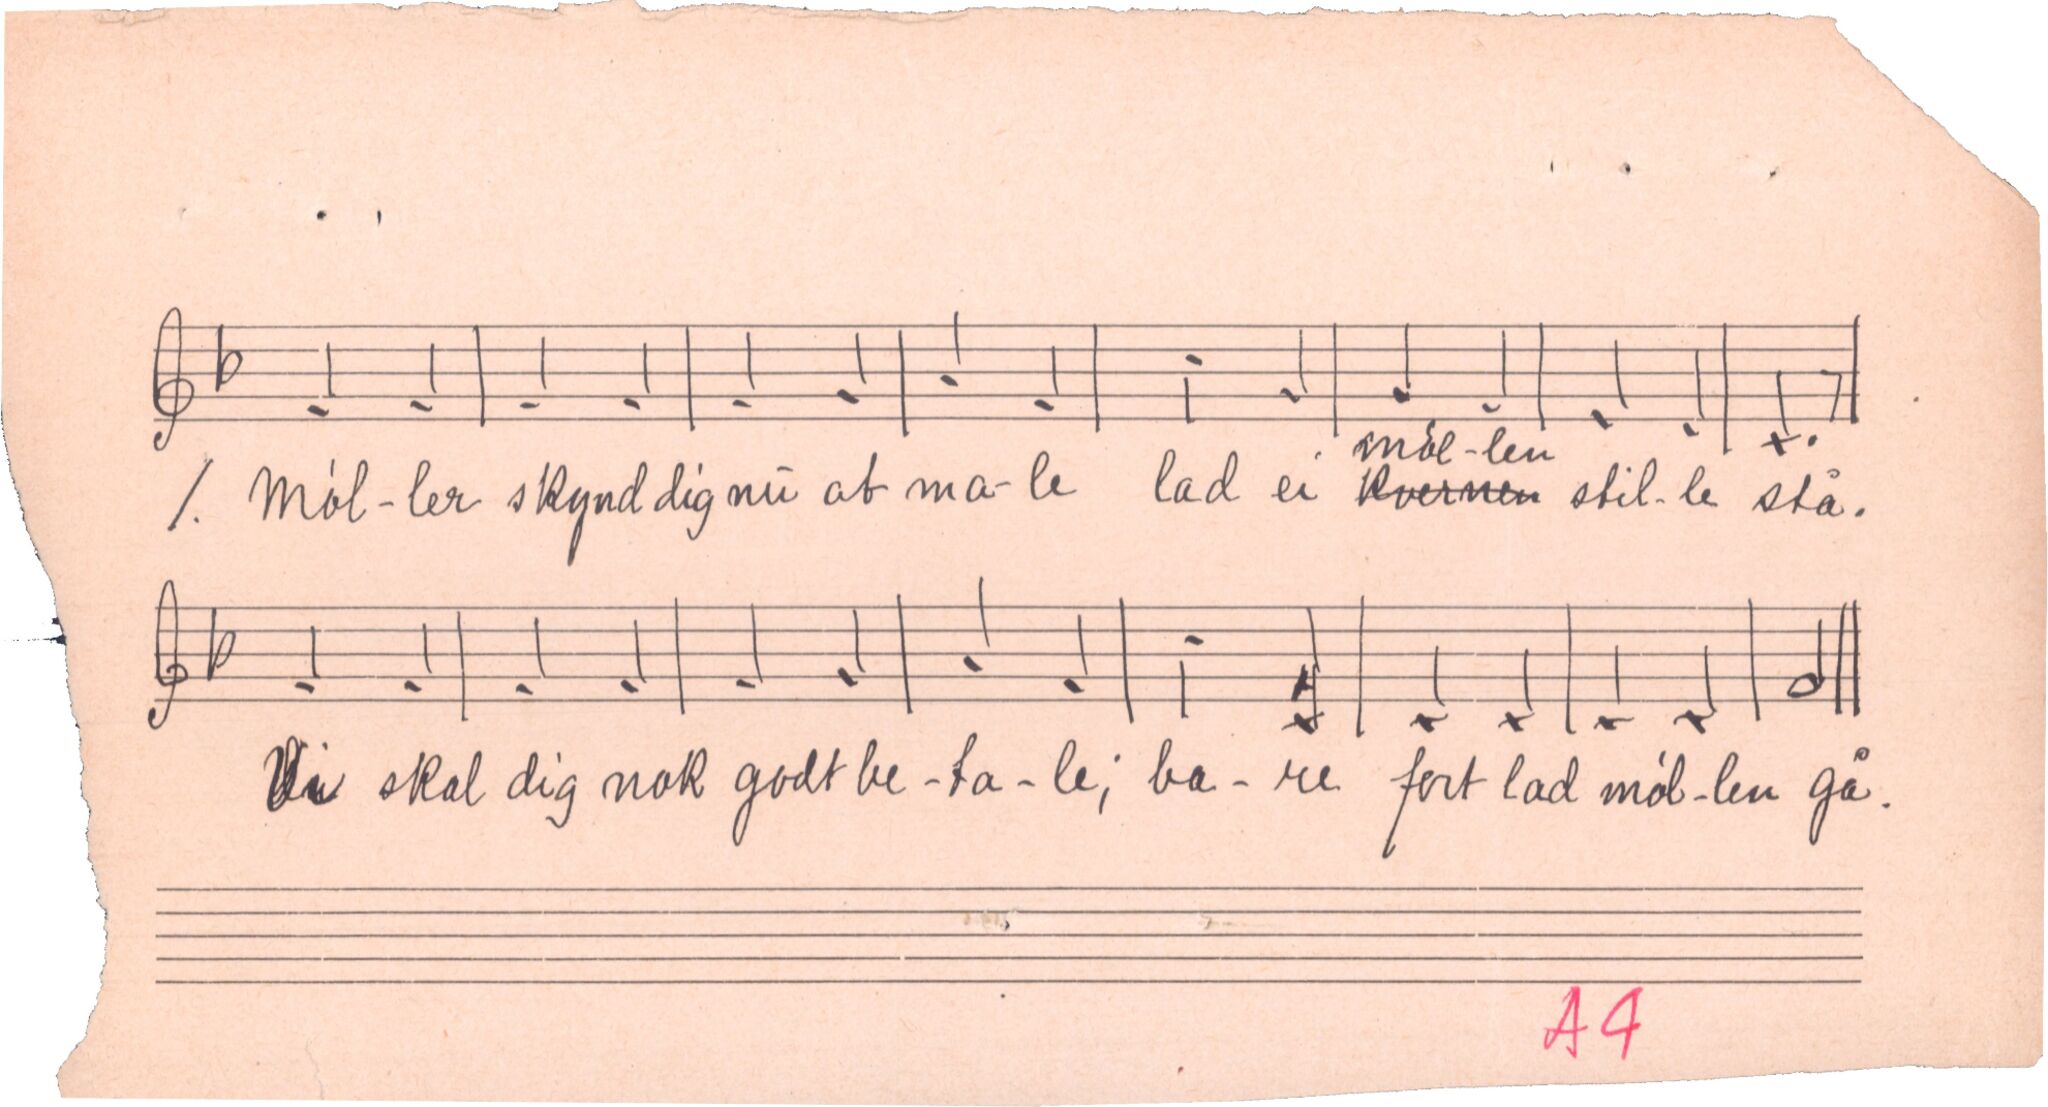 möl-len
1. Möl-ler skynd dig nu at ma-le lad ei kvernen stil-le stå.
Vi skal dig nok godt be-ta-le; ba-re fort lad möl-len gå.
A4